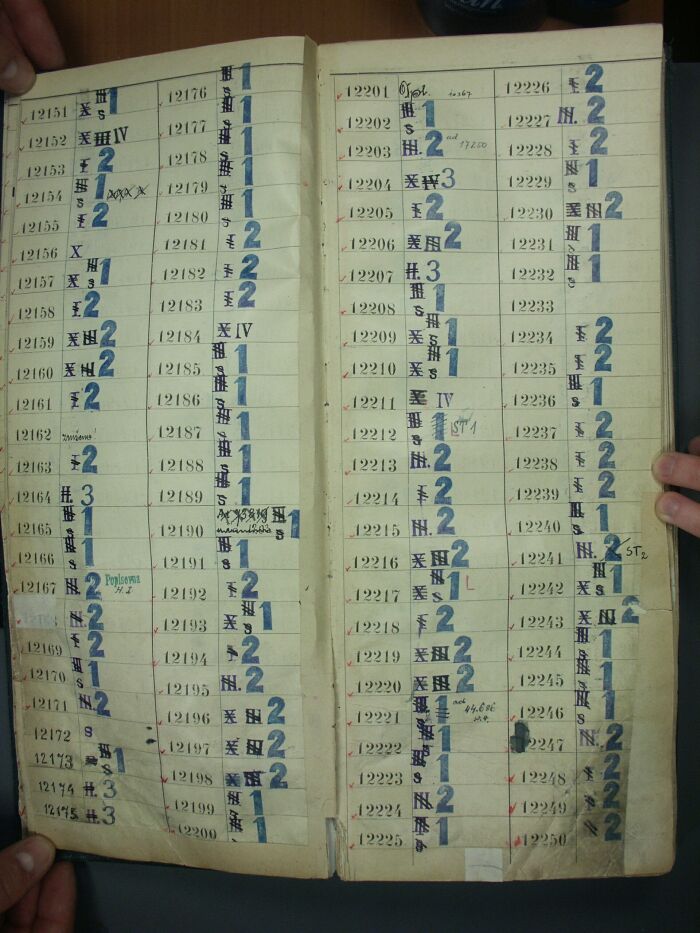 12151 X III S 1
12152 X III IV
12153 I 2
12154 III S 1 XXX X
12155 I 2
12156 X
12157 X III S 1
12158 I 2
12159 X III 2
12160 X III 2
12161 I 2
12162
12163 I 2
12164 II. 3
12165 III S 1
12166 III S 1
12167 III. 2 Popisovna H. I
III. 2
12169 I 2
12170 III S 1
12171 III. 2
12172 S
12173 III S 1
12174 II. 3
12175 II. 3
12176 III S 1
12177 III S 1
12178 III S 1
12179 III S 1
12180 III S 1
12181 I 2
12182 I 2
12183 I 2
12184 X IV
12185 III S 1
12186 III S 1
12187 III S 1
12188 III S 1
12189 III S 1
12190 III S 1
12191 III S 1
12192 I 2
12193 X III S 1
12194 I 2
12195 III. 2
12196 X III 2
12197 X III 2
12198 X III 2
12199 III S 1
12200 III S 1
12201
12202 III S 1
12203 III. 2 ad 17250
12204 X IV 3
12205 I 2
12206 X III 2
12207 II. 3
12208 III S 1
12209 X III S 1
12210 X III S 1
12211 X IV
12212 III S 1 ST 1
12213 III. 2
12214 I 2
12215 III. 2
12216 X III 2
12217 X III S 1 L
12218 I 2
12219 X III 2
12220 X III 2
12221 III S 1 ad 44.686
12222 III S 1
12223 III S 1
12224 III 2
12225 III S 1
12226 I 2
12227 III. 2
12228 I 2
12229 III S 1
12230 X III 2
12231 III S 1
12232 III S 1
12233
12234 I 2
12235 I 2
12236 III S 1
12237 I 2
12238 I 2
12239 I 2
12240 III S 1
12241 III. 2 ST 2
12242 X III S 1
12243 X III 2
12244 III S 1
12245 III S 1
12246 III S 1
12247 III. 2
12248 I 2
12249 I 2
12250 2